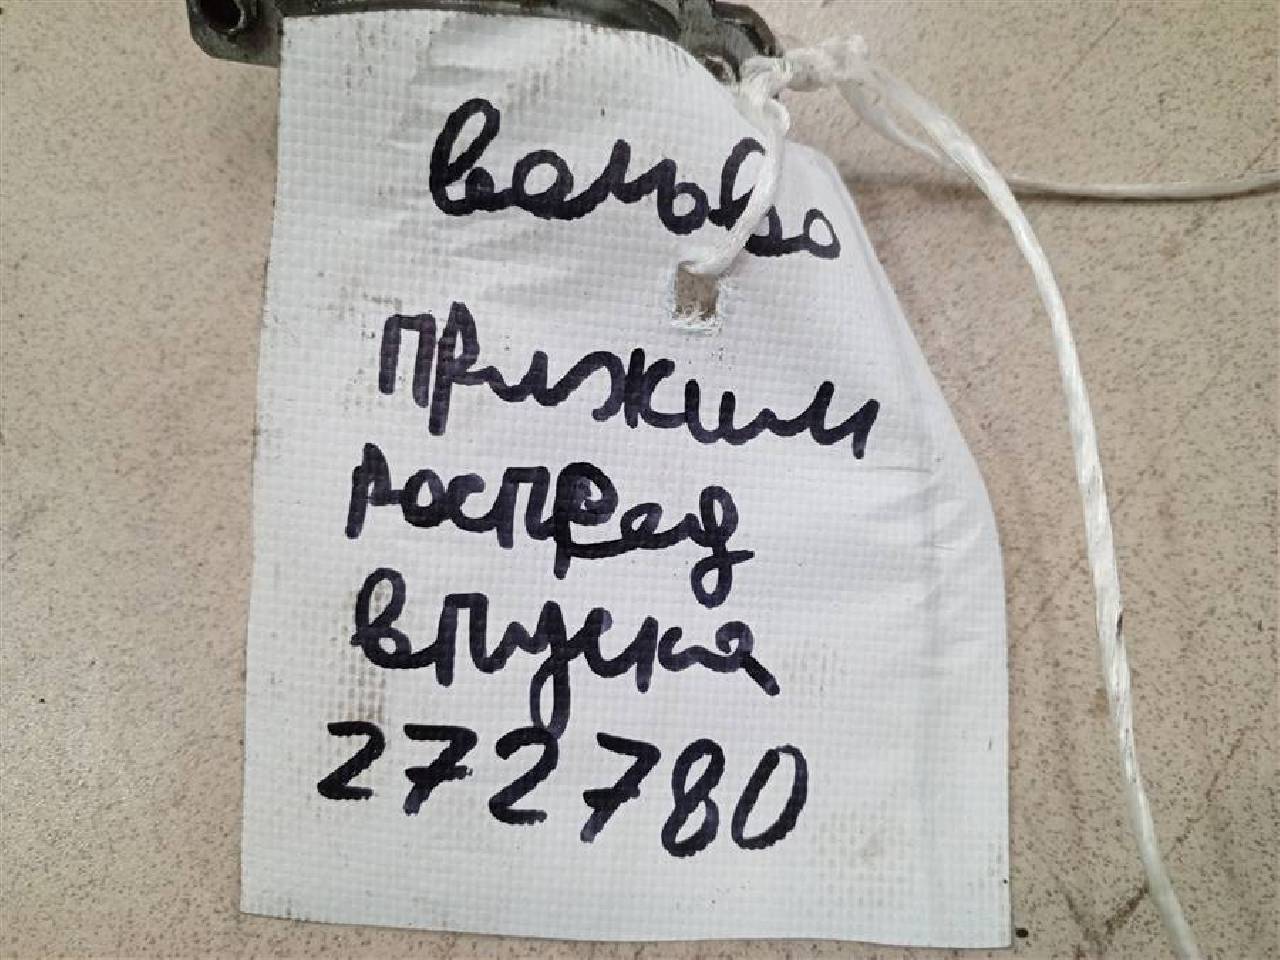 вольво
прижим
распред
впуска
272780